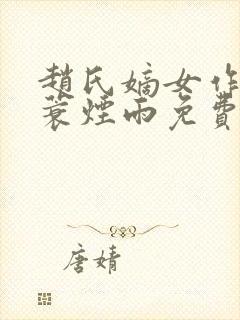 趙氏嫡女作
蓑煙雨免費
唐婧